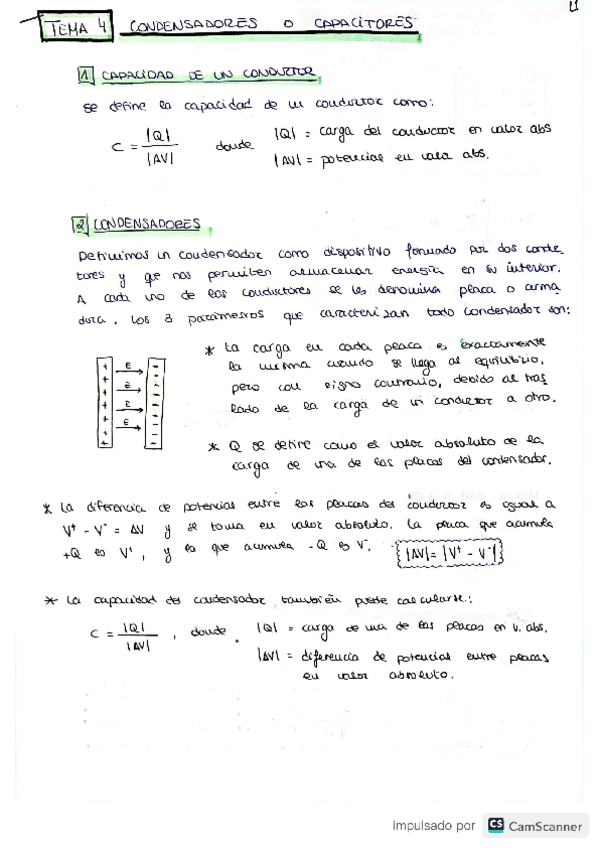 TEMA 4 CONDENSADORES O CAPACITORES
1 CAPACIDAD DE UN CONDUCTOR
Se define la capacidad de un conductor como:
C = |Q| / |ΔV| donde |Q| = carga del conductor en valor abs
|ΔV| = potencial en valor abs.
2 CONDENSADORES
Definimos un condensador como dispositivo formado por dos conduc
tores y que nos permiten almacenar energía en su interior.
A cada uno de los conductores se les denomina placa o arma
dura. Los 3 parámetros que caracterizan todo condensador son:
* La carga en cada placa es exactamente
la misma cuando se llega al equilibrio,
pero con signo contrario, debido al tras
lado de la carga de un conductor a otro.
E
E
E
E
* Q se define como el valor absoluto de la
carga de una de las placas del condensador.
* La diferencia de potencial entre las placas del conductor es igual a
V⁺ - V⁻ = ΔV y se toma en valor absoluto. La placa que acumula
+Q es V⁺, y la que acumula -Q es V⁻. |ΔV| = |V⁺ - V⁻|
* La capacidad del condensador también puede calcularse:
C = |Q| / |ΔV| , donde |Q| = carga de una de las placas en v. abs.
|ΔV| = diferencia de potencial entre placas
en valor absoluto.
Impulsado por CS CamScanner